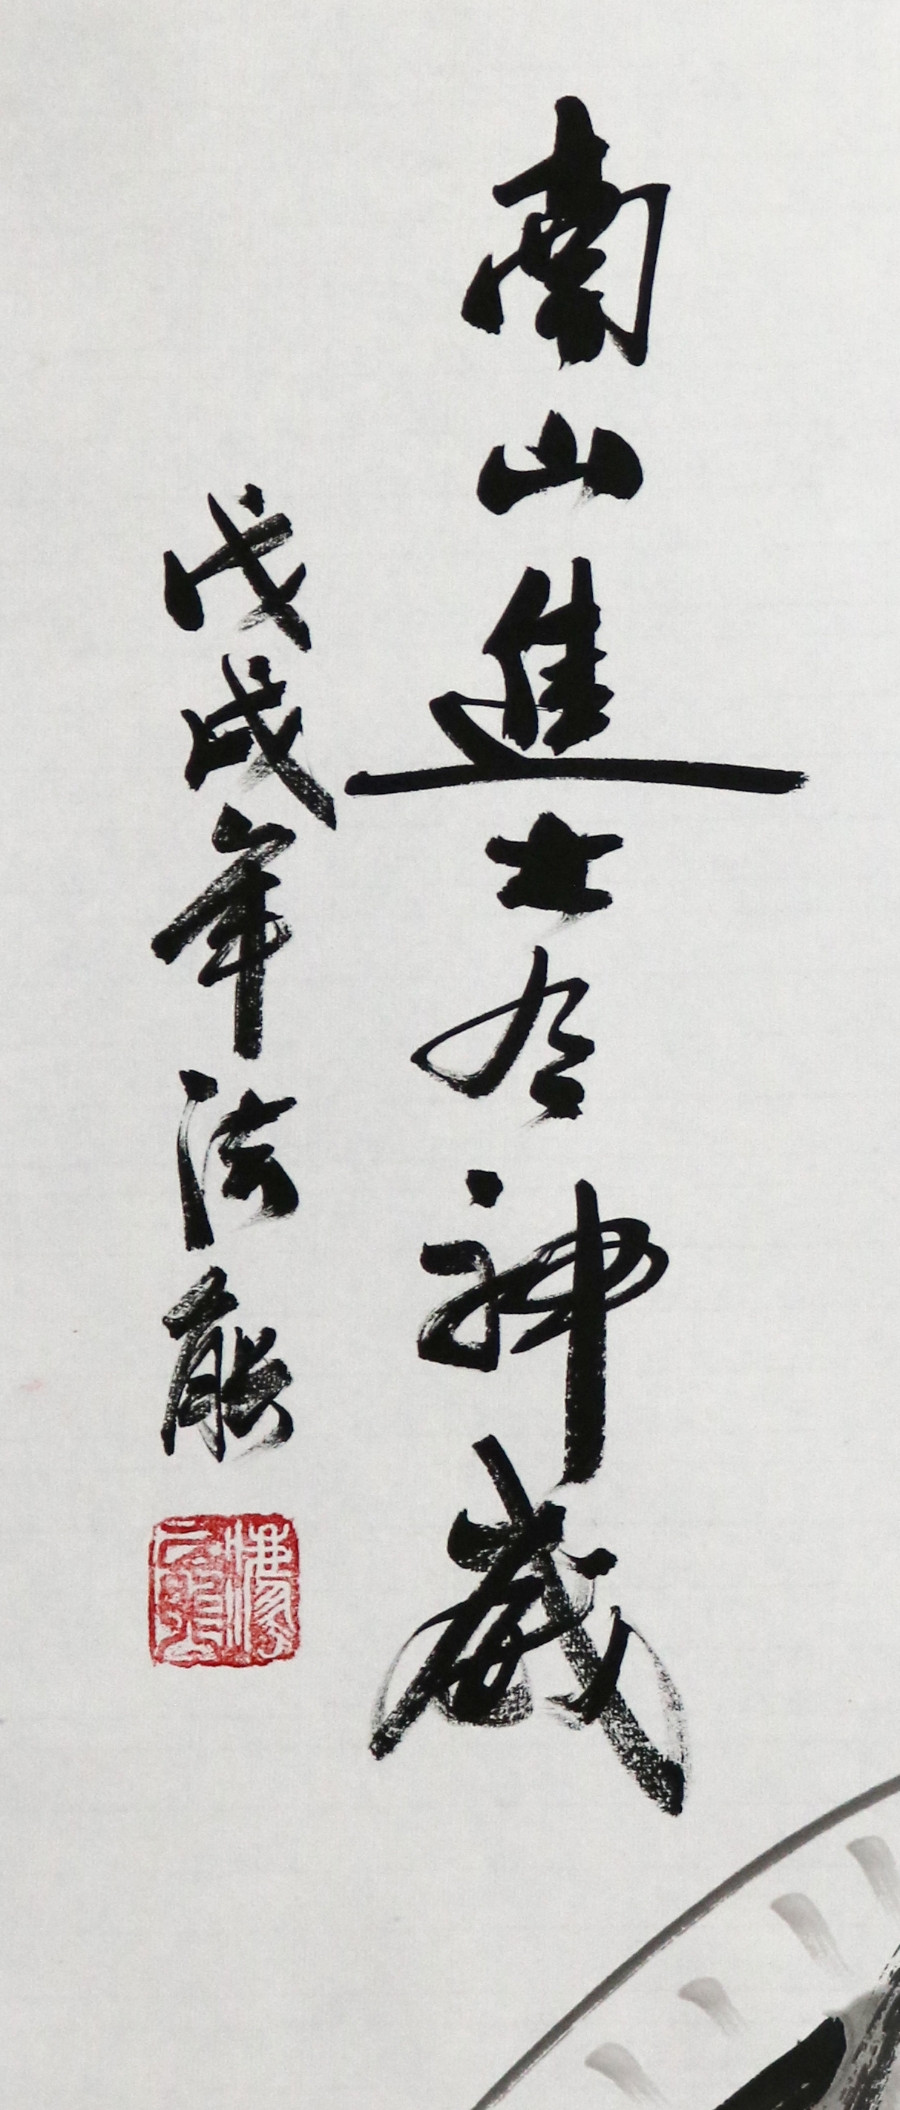 南山進士今神威
戊戌年法能